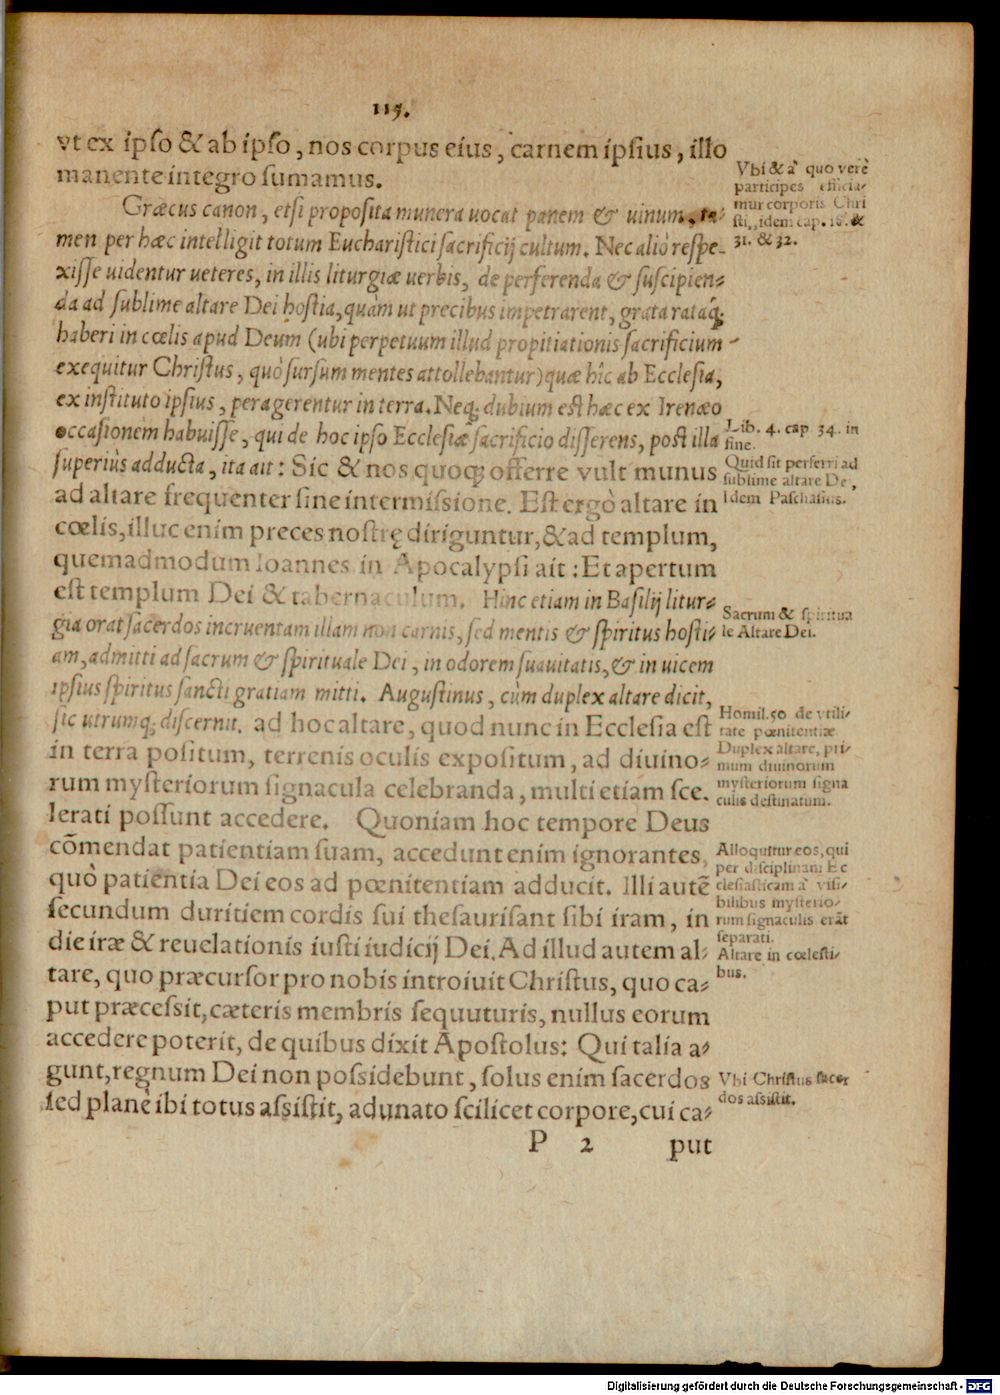 115.
vt ex ipso & ab ipso, nos corpus eius, carnem ipsius, illo
manente integro sumamus.
Vbi & à quo verè
participes efficia⸗
mur corporis Chri
sti, idem cap. 16. &
31. & 32.
Græcus canon, etsi proposita munera uocat panem & uinum, ta⸗
men per hæc intelligit totum Eucharistici sacrificij cultum. Nec aliò respe⸗
xisse uidentur ueteres, in illis liturgiæ uerbis, de perferenda & suscipien⸗
da ad sublime altare Dei hostia, quàm ut precibus impetrarent, grata rataq́;
haberi in cœlis apud Deum (ubi perpetuum illud propitiationis sacrificium
exequitur Christus, quò sursum mentes attollebantur) quæ hîc ab Ecclesia,
ex instituto ipsius, peragerentur in terra. Neq; dubium est hæc ex Irenæo
occasionem habuisse, qui de hoc ipso Ecclesiæ sacrificio disserens, post illa
superiùs adducta, ita ait: Sic & nos quoq; offerre vult munus
ad altare frequenter sine intermissione. Est ergò altare in
cœlis, illuc enim preces nostrę diriguntur, & ad templum,
quemadmodum Ioannes in Apocalypsi ait: Et apertum
est templum Dei & tabernaculum. Hinc etiam in Basilij litur⸗
gia orat sacerdos incruentam illam non carnis, sed mentis & spiritus hosti⸗
am, admitti ad sacrum & spirituale Dei, in odorem suauitatis, & in uicem
ipsius spiritus sancti gratiam mitti. Augustinus, cùm duplex altare dicit,
sic utrumq; discernit. ad hoc altare, quod nunc in Ecclesia est
in terra positum, terrenis oculis expositum, ad diuino⸗
rum mysteriorum signacula celebranda, multi etiam sce⸗
lerati possunt accedere. Quoniam hoc tempore Deus
cōmendat patientiam suam, accedunt enim ignorantes,
quò patientia Dei eos ad pœnitentiam adducit. Illi autē
secundum duritiem cordis sui thesaurisant sibi iram, in
die iræ & reuelationis iusti iudicij Dei. Ad illud autem al⸗
tare, quo præcursor pro nobis introiuit Christus, quo ca⸗
put præcessit, cæteris membris sequuturis, nullus eorum
accedere poterit, de quibus dixit Apostolus: Qui talia a⸗
gunt, regnum Dei non possidebunt, solus enim sacerdos
sed planè ibi totus assistit, adunato scilicet corpore, cui ca⸗
Lib. 4. cap. 34. in
fine.
Quid sit perferri ad
sublime altare De,
Idem Paschasius.
Sacrum & spiritua
le Altare Dei.
Homil. 50 de vtili⸗
tate pœnitentiæ
Duplex altare, pri⸗
mum diuinorum
mysteriorum signa
culis destinatum.
Alloquitur eos, qui
per disciplinam Ec
clesiasticam à visi⸗
bilibus mysterio⸗
rum signaculis erāt
separati.
Altare in cœlesti⸗
bus.
Vbi Christus sacer
dos assistit.
P 2 put
Digitalisierung gefördert durch die Deutsche Forschungsgemeinschaft - DFG